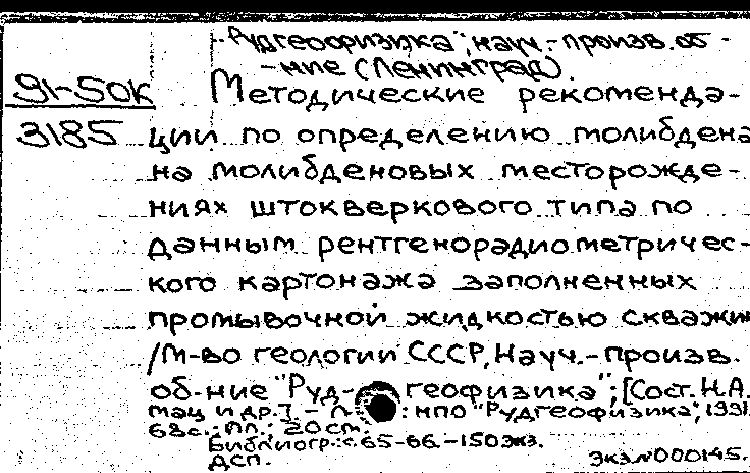 "Рудгеофизика", науч.-произв. об-
-ние (Ленинград).
91-50к Методические рекоменда-
3185 ции по определению молибдена
на молибденовых месторожде-
ниях штокверкового типа по
данным рентгенорадиометричес-
кого картонажа заполненных
промывочной жидкостью скважин
/М-во геологии СССР, Науч.-произв.
об-ние "Руд- геофизика"; [Сост. Н.А.
Мац и др.]. - Л. : НПО "Рудгеофизика", 1991.
68с.: ил.; 20см.
Библиогр.: с. 65-66. - 150экз.
ДСП. Экз.N000145.